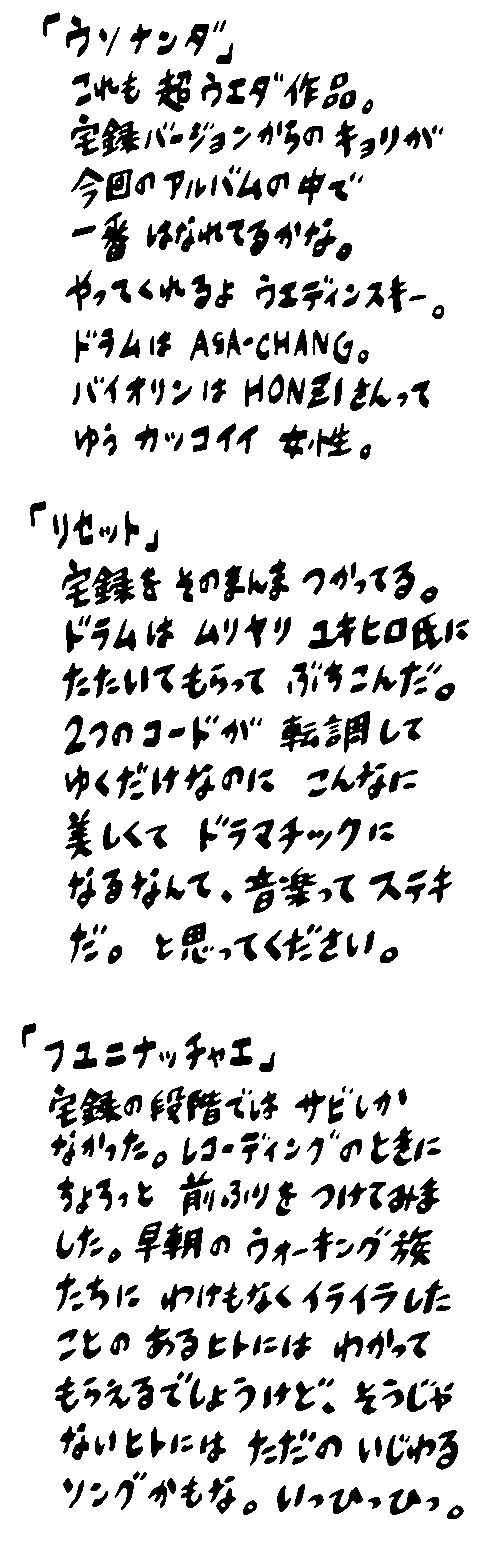 「ウソナンダ」
これも 超ウエダ作品。
宅録バージョンからの キョリが
今回の アルバムの 中で
一番 はなれてるかな。
やってくれるよ ウエディンスキー。
ドラムは ASA-CHANG。
バイオリンは HONZIさんって
ゆう カッコイイ 女性。
「リセット」
宅録を そのまんま つかってる。
ドラムは ムリヤリ ユキヒロ氏に
たたいてもらって ぶちこんだ。
2つのコードが 転調して
ゆくだけなのに こんなに
美しくて ドラマチックに
なるなんて、音楽って ステキ
だ。と思ってください。
「フユニナッチャエ」
宅録の段階では サビしか
なかった。レコーディングのときに
ちょろっと 前ふりを つけてみま
した。早朝の ウォーキング族
たちに わけもなくイライラした
ことの あるヒトには わかって
もらえるでしょうけど、そうじゃ
ないヒトには ただの いじわる
ソングかもな。いっひっひっ。